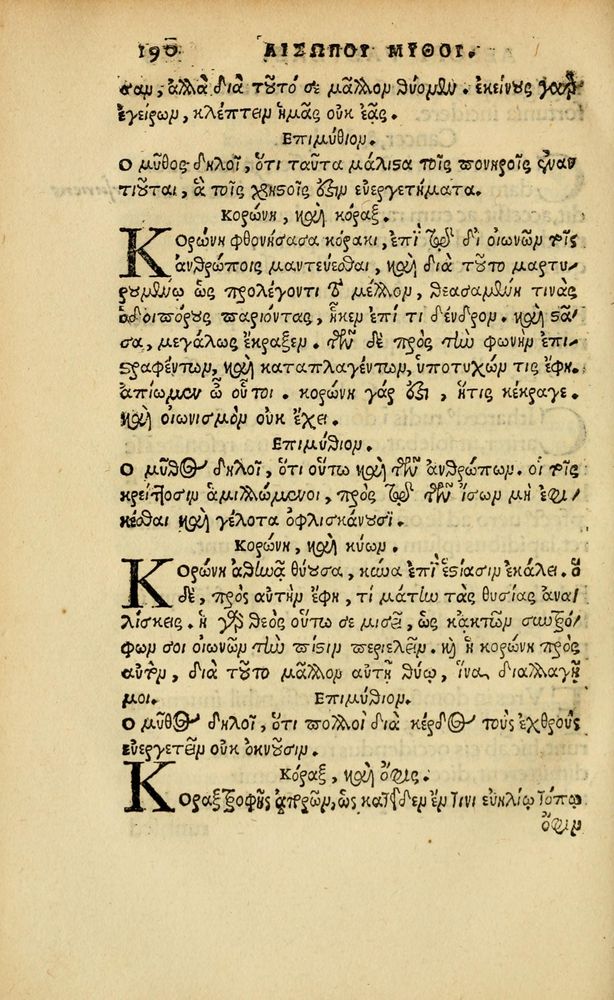 190 ΑΙΣΩΠΟΥ ΜΥΘΟΙ.
σαν, ἀλλὰ διὰ τοῦτό σε μᾶλλον θύομεν. ἐκείνους γὰρ
ἐγείρων, κλέπτειν ἡμᾶς οὐκ ἐᾷς.
Επιμύθιον.
Ο μῦθος δηλοῖ, ὅτι ταῦτα μάλιστα τοῖς πονηροῖς ἐναν
τιοῦται, ἃ τοῖς χρηστοῖς ὅξιν εὐεργετήματα.
Κορώνη, καὶ κόραξ.
Κορώνη φθονήσασα κόρακι, ἐπὶ τῷ δι᾽ οἰωνῶν τοῖς
ἀνθρώποις μαντεύεσθαι, καὶ διὰ τοῦτο μαρτυ-
ρουμένῳ ὡς προλέγοντι τὸ μέλλον, θεασαμένη τινὰς
ὁδοιπόρους παριόντας, ἧκεν ἐπί τι δένδρον. καὶ στᾶ-
σα, μεγάλως ἔκραξεν. τῶν δὲ πρὸς τὴν φωνὴν ἐπι-
στραφέντων, καὶ καταπλαγέντων, ὑποτυχών τις ἔφη.
ἀπίωμεν ὦ οὗτοι. κορώνη γάρ ἐστι, ἥτις κέκραγε.
καὶ οἰωνισμὸν οὐκ ἔχει.
Επιμύθιον.
Ο μῦθος δηλοῖ, ὅτι οὕτω καὶ τῶν ἀνθρώπων. οἱ τοῖς
κρείττοσιν ἁμιλλώμενοι, πρὸς τῷ τῶν ἴσων μὴ ἐφι-
κέσθαι καὶ γέλοτα ὀφλισκάνουσι.
Κορώνη, καὶ κύων.
Κορώνη ἀθηνᾷ θύουσα, κύνα ἐπὶ ἑστίασιν ἐκάλει. ὁ
δὲ, πρὸς αὐτὴν ἔφη, τί μάτην τὰς θυσίας ἀνα
λίσκεις. ἡ γὰρ θεὸς οὕτω σε μισεῖ, ὡς κἀκ τῶν συντρό-
φων σοι οἰωνῶν τὴν πίστιν περιελεῖν. καὶ ἡ κορώνη πρὸς
αὐτὸν, διὰ τοῦτο μᾶλλον αὐτῇ θύω, ἵνα διαλλαγῇ
μοι. Επιμύθιον.
Ο μῦθος δηλοῖ, ὅτι πολλοὶ διὰ κέρδος τοὺς ἐχθροὺς
εὐεργετεῖν οὐκ ὀκνοῦσιν.
Κόραξ, καὶ ὄφις.
Κοραξ τροφῆς ἀπορῶν, ὡς κατεῖδεν ἔν τινι εὐηλίῳ τόπῳ
ὄφιν